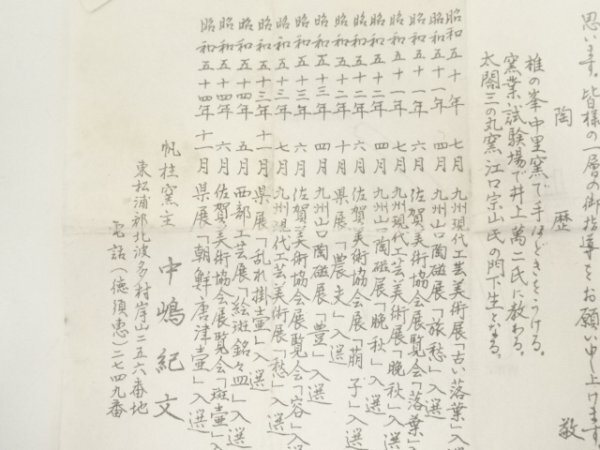 思います。皆様の一層の御指導をお願い申し上げます。
敬
陶歴
椎の峯中里窯で手ほどきをうける。
窯業試験場で井上萬二氏に教わる。
太閤三の丸窯江口宗山氏の門下生となる。
昭和五十年 七月 九州現代工芸美術展「古い落葉」入
昭和五十一年 四月 九州山口陶磁展「旅愁」入選
昭和五十一年 六月 佐賀美術協会展覧会「落葉」
昭和五十一年 七月 九州現代工芸美術展「晩秋」入
昭和五十二年 四月 九州山口陶磁展「晩秋」入選
昭和五十二年 六月 佐賀美術協会展「萠子」入選
昭和五十二年 十月 県展「農夫」入選
昭和五十三年 四月 九州山口陶磁展「豊」入選
昭和五十三年 六月 佐賀美術協会展覧会「容」入選
昭和五十三年 七月 九州現代工芸美術展「愁」入選
昭和五十三年 十一月 県展「乱れ掛壷」入選
昭和五十四年 五月 西部工芸展「絵斑銘々皿」入選
昭和五十四年 六月 佐賀美術協会展覧会「斑壷」入
昭和五十四年 十一月 県展「朝鮮唐津壷」入選
帆柱窯主 中嶋紀文
東松浦郡北波多村岸山二五六番地
電話(徳須恵)二七四九番